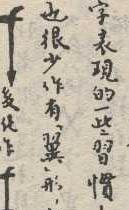 字表現的一些習慣
也很少作有「翼」形,
変化作